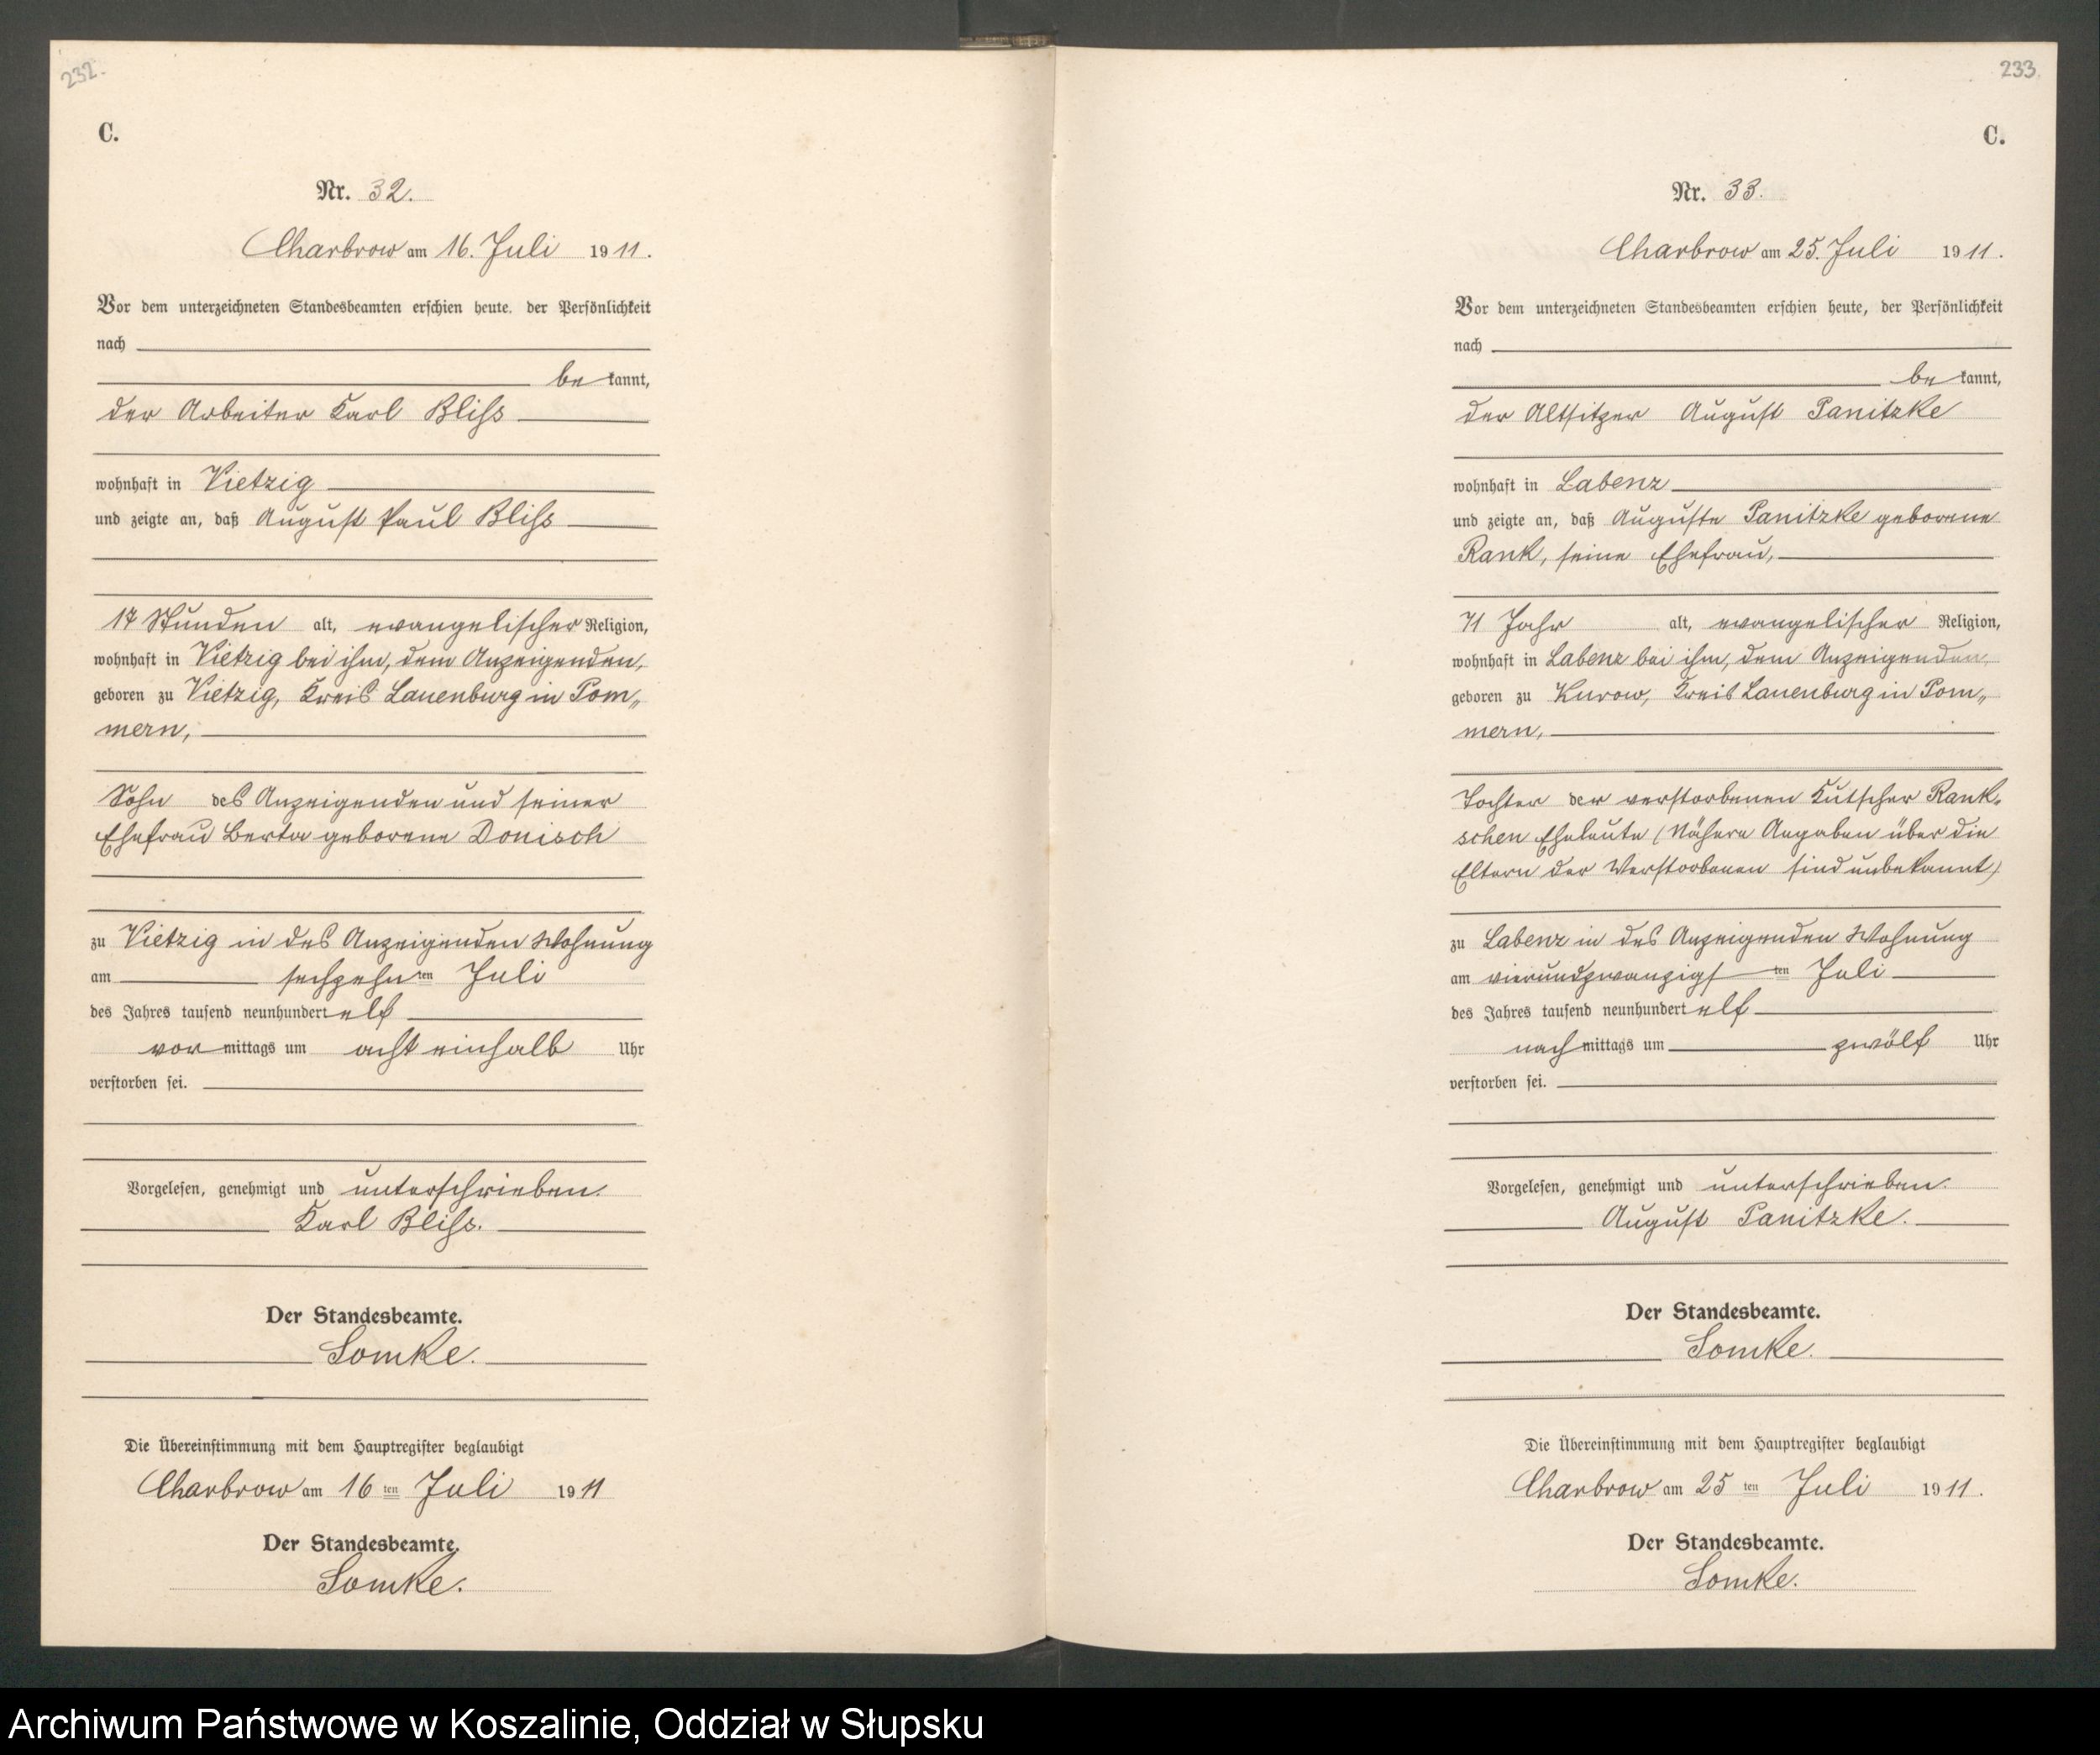 232.
C.
Nr. 32.
Charbrow am 16. Juli 1911.
Vor dem unterzeichneten Standesbeamten erschien heute, der Persönlichkeit
nach
be kannt,
der Arbeiter Karl Bliss
wohnhaft in Vietzig
und zeigte an, daß August Paul Bliss
17 Stunden alt, evangelischer Religion,
wohnhaft in Vietzig bei ihm, dem Anzeigenden,
geboren zu Vietzig, Kreis Lauenburg in Pom„
mern,
Sohn des Anzeigenden und seiner
Ehefrau Berta geborene Donisch
zu Vietzig in des Anzeigenden Wohnung
am sechzehn ten Juli
des Jahres tausend neunhundert elf
vor mittags um acht einhalb Uhr
verstorben sei.
Vorgelesen, genehmigt und unterschrieben.
Karl Bliss.
Der Standesbeamte.
Lomke.
Die Übereinstimmung mit dem Hauptregister beglaubigt
Charbrow am 16 ten Juli 1911
Der Standesbeamte.
Lomke.
233.
C.
Nr. 33.
Charbrow am 25. Juli 1911.
Vor dem unterzeichneten Standesbeamten erschien heute, der Persönlichkeit
nach
be kannt,
der Altsitzer August Panitzke
wohnhaft in Labenz
und zeigte an, daß Auguste Panitzke geborene
Rank, seine Ehefrau,
71 Jahr alt, evangelischer Religion,
wohnhaft in Labenz bei ihm, dem Anzeigenden,
geboren zu Kurow, Kreis Lauenburg in Pom„
mern,
Tochter der verstorbenen Kutscher Rank-
schen Eheleute (Nähere Angaben über die
Eltern der Verstorbenen sind unbekannt)
zu Labenz in des Anzeigenden Wohnung
am vierundzwanzigs ten Juli
des Jahres tausend neunhundert elf
nach mittags um zwölf Uhr
verstorben sei.
Vorgelesen, genehmigt und unterschrieben.
August Panitzke.
Der Standesbeamte.
Lomke.
Die Übereinstimmung mit dem Hauptregister beglaubigt
Charbrow am 25 ten Juli 1911.
Der Standesbeamte.
Lomke.
Archiwum Państwowe w Koszalinie, Oddział w Słupsku